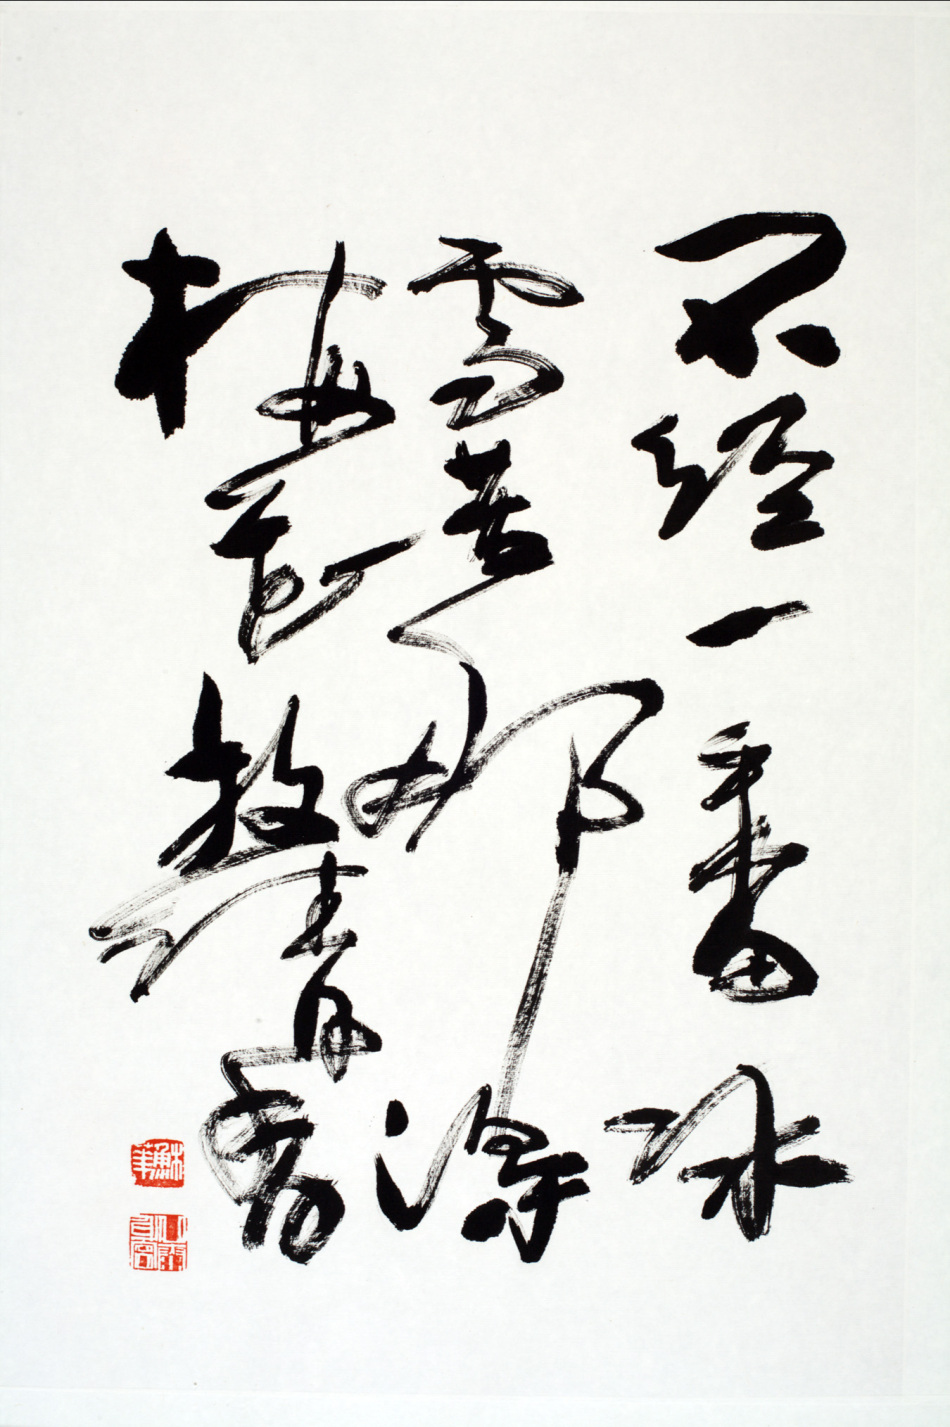 不經一番冰
雪苦那得
梅花放清香